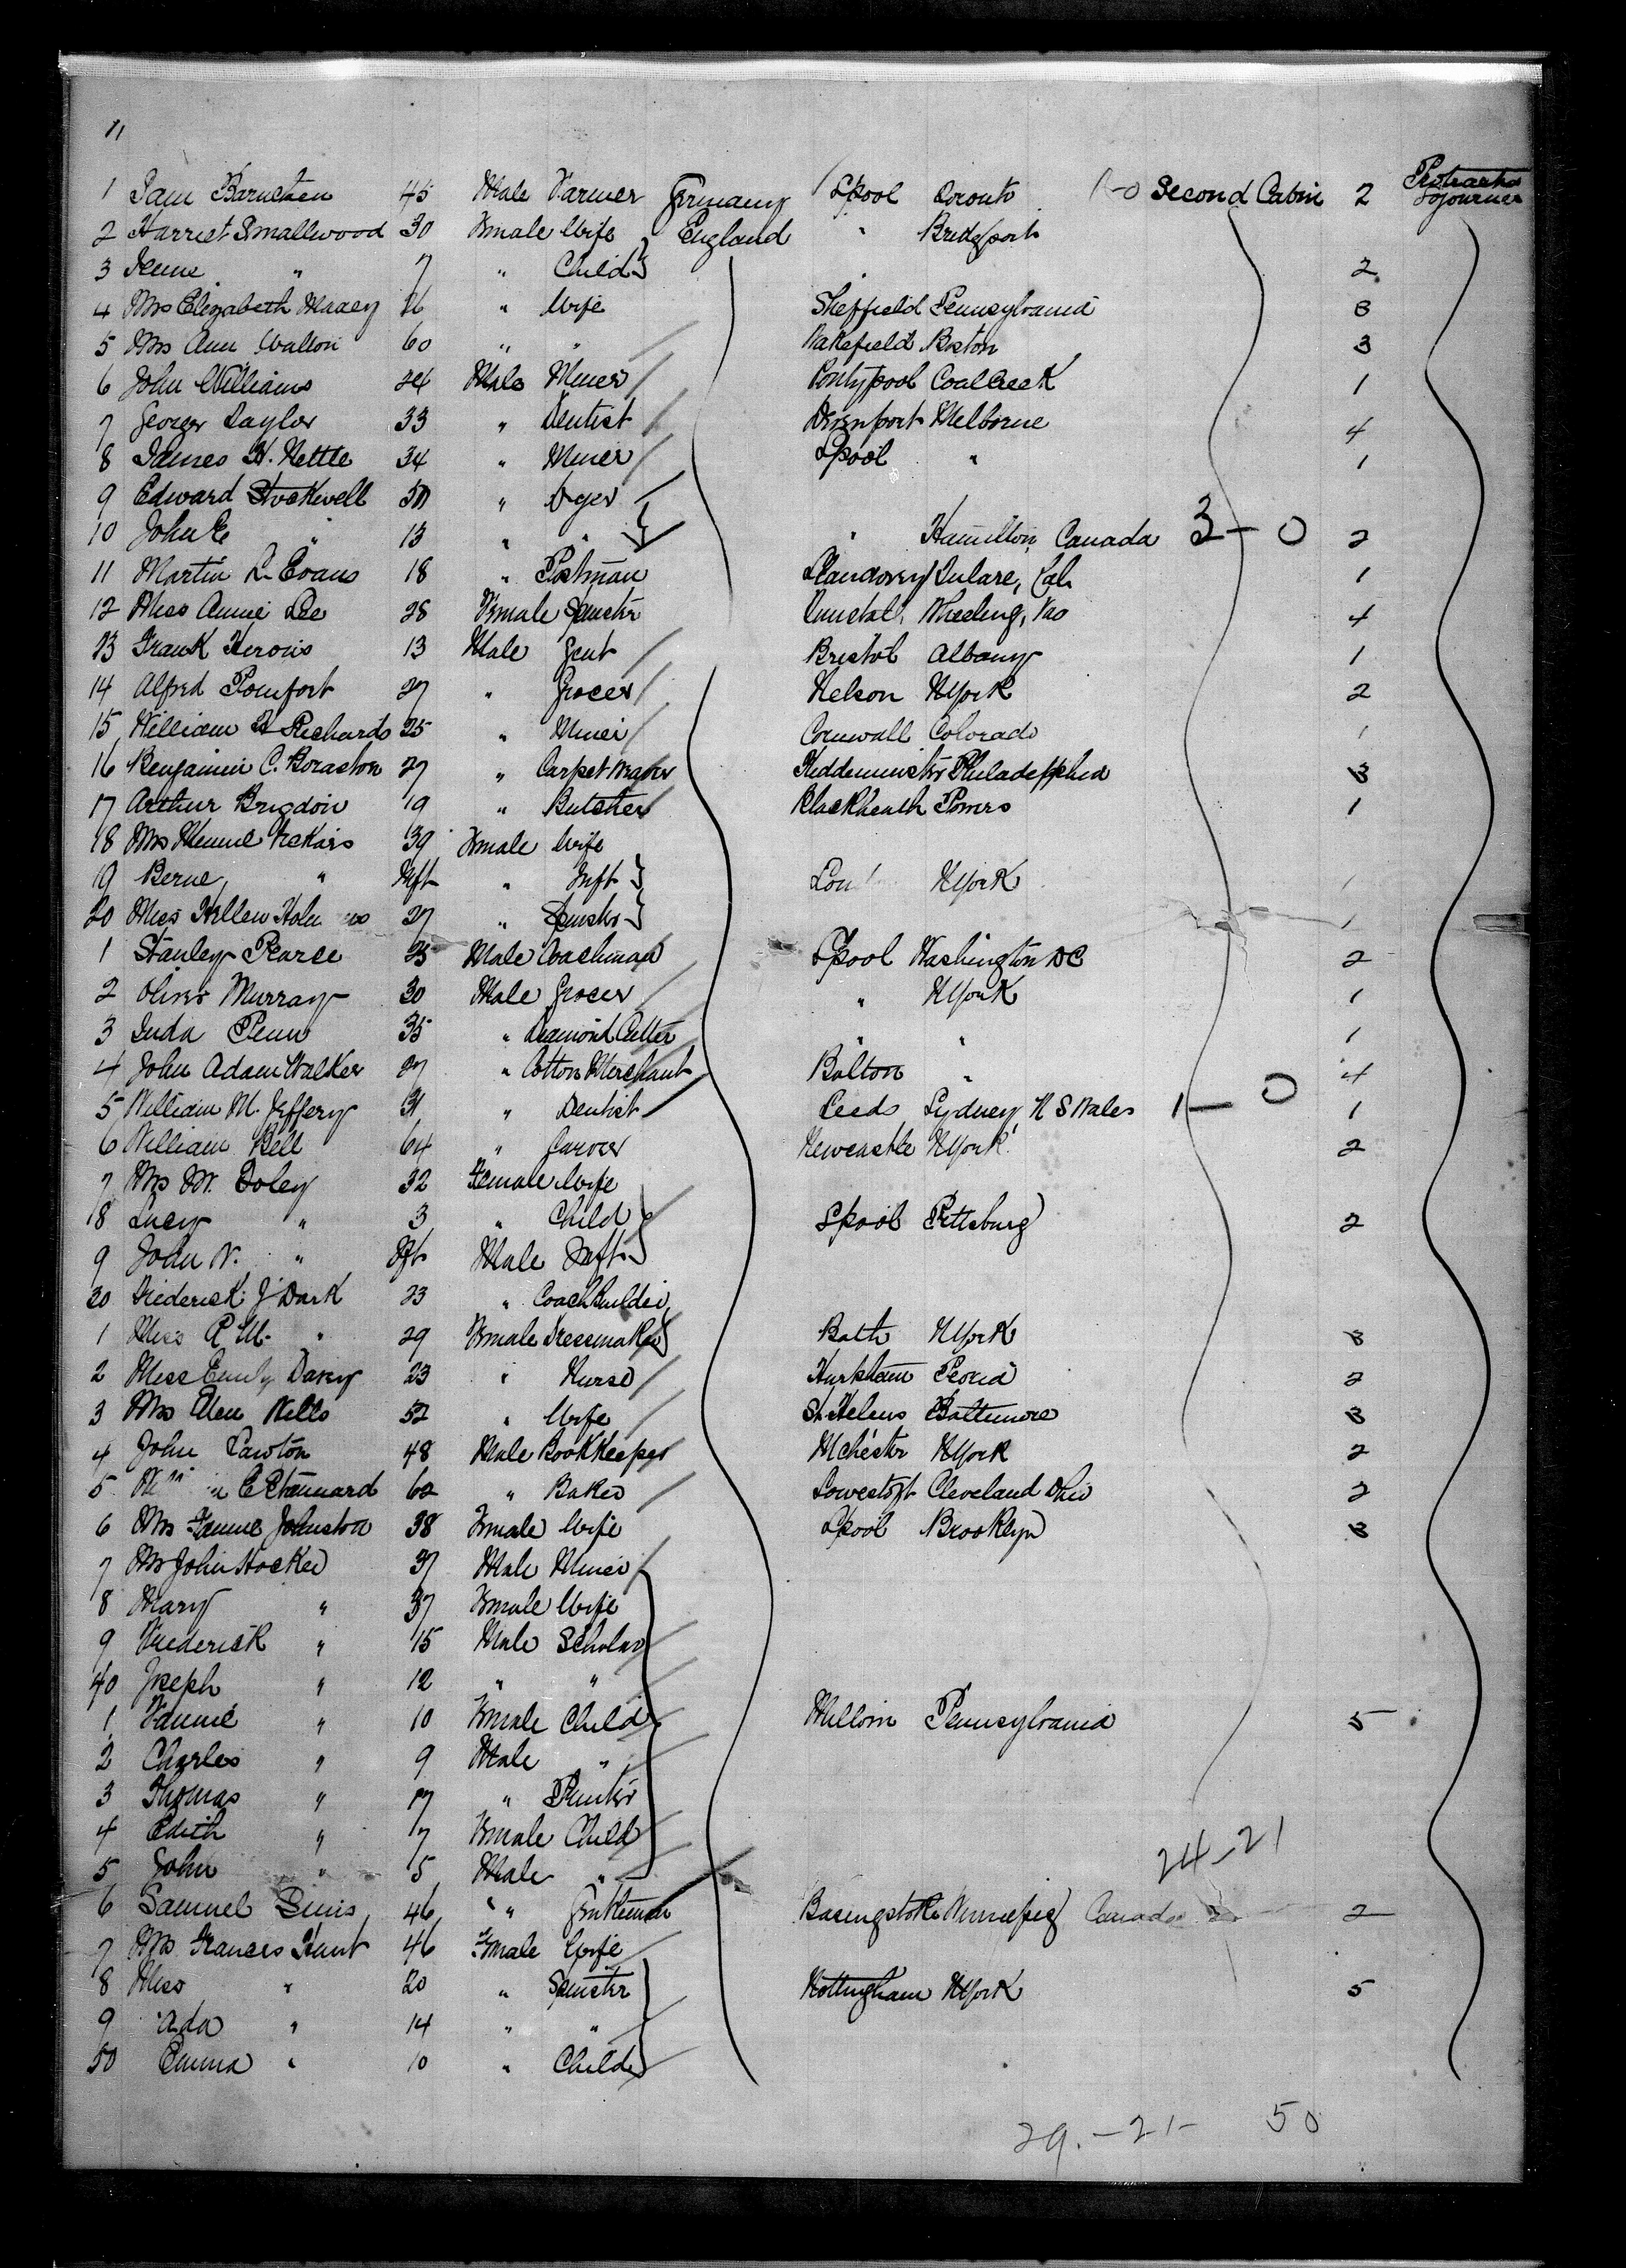 11
1 Sam 45 Male Farmer Germany L'pool Toronto 1-0 Second Cabin 2 Protracted Sojourner
2 Harriet Smallwood 30 Female Wife England " Bridgeport
3 " 7 " Child 2
4 Mrs Elizabeth " Wife Sheffield Pennsylvania 3
5 Mrs Ann Walton 60 " " Wakefield Boston 3
6 John Williams 24 Male Miner Pontypool Coal Creek 1
7 George Taylor 33 " Dentist Melborne 4
8 James H. Nettle 34 " Miner L'pool " 1
9 Edward Stockwell 50 " Dyer
10 John E " 13 " " " Hamilton, Canada 3-0 2
11 Martin L. Evans 18 " Postman Llandovery Tulare, Cal 1
12 Miss Annie Lee 28 Female Spinster Tunstall, Wheeling, 4
13 Frank 13 Male Gent Bristol Albany 1
14 Alfred Pomfort 27 " Grocer Nelson N York 2
15 William H Richards 25 " Miner Cornwall Colorado 1
16 Benjamin C. Boraston 27 " Carpet Weaver Kidderminster Philadelphia 3
17 Arthur Brigdon 19 " Butcher Blackheath Powers 1
18 Mrs Minnie Vickars 39 Female Wife
19 " Inft " Inft N York 1
20 Miss Hellen 27 " Spinster 1
1 Stanley Pearce 25 Male Coachman L'pool Washington DC 2
2 Oliver Murray 30 Male Grocer " N York 1
3 Juda Penn 35 " Diamond Cutter " " 1
4 John Adam Walker 27 " Cotton Merchant Bolton " 4
5 William M. Jeffery 31 " Dentist Leeds Sydney, N S Wales 1-0 1
6 William Bell 64 " Carver Newcastle N York 2
7 Mrs M. Doley 32 Female Wife
8 Lucy " 3 " Child L'pool Pittsburg 2
9 John W. " Inft Male Inft
30 Frederick J Dark 23 " Coach Builder
1 Miss R M. " 29 Female Dressmaker Bath N York 3
2 Miss Emily Davey 23 " Nurse 2
3 Mrs Ellen Wells 52 " Wife St. Helens Baltimore 3
4 John Lawton 48 Male Bookkeeper M'chester N York 2
5 Stannard 62 " Baker Lowestoft Cleveland Ohio 2
6 Mrs Fannie Johnston 38 Female Wife L'pool Brooklyn 3
7 Mr John Hocker 37 Male Miner
8 Mary " 37 Female Wife
9 Frederick " 15 Male Scholar
40 Joseph " 12 " "
1 Fannie " 10 Female Child Millom Pennsylvania 5
2 Charles " 9 Male "
3 Thomas " 17 "
4 Edith " 7 Female Child
5 John " 5 Male " 24-21
6 Samuel 46 " Gentleman Basingstoke Winnepieg Canada 2
7 Mrs Frances Hunt 46 Female Wife
8 Miss " 20 " Spinster Nottingham N York 5
9 Ada " 14 " "
50 Emma " 10 " Child
29.-21- 50